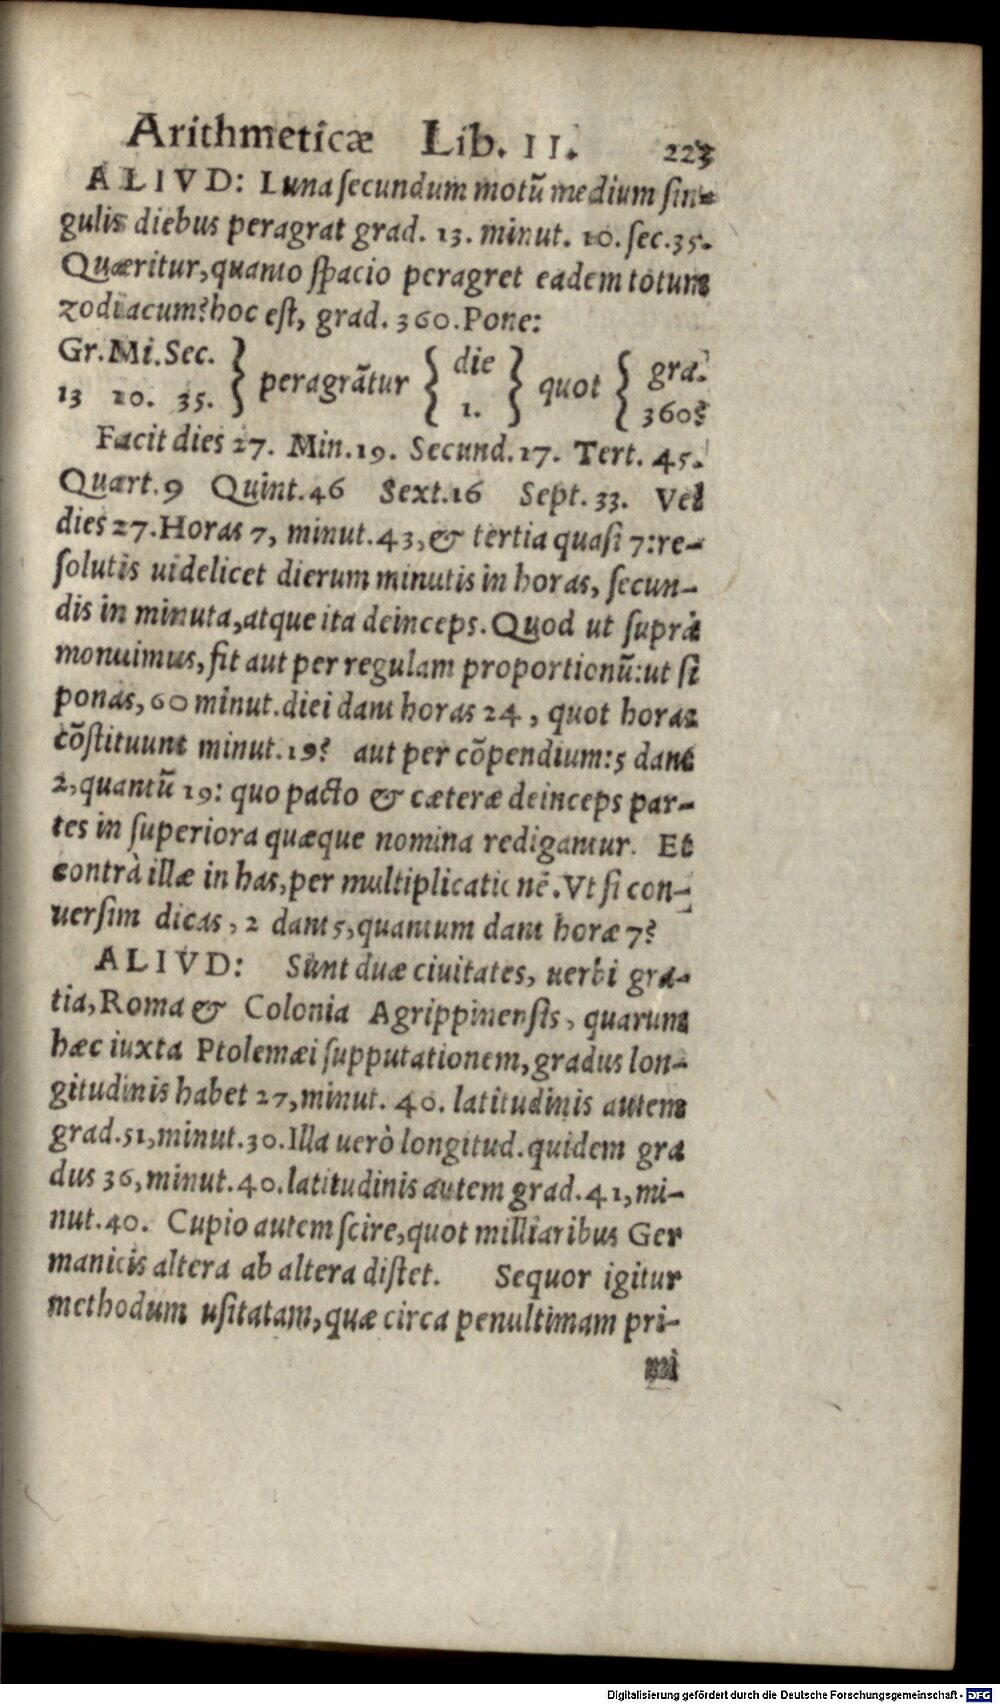 Arithmeticæ Lib. II. 223
ALIVD: Luna ſecundum motũ medium ſin-
gulis diebus peragrat grad. 13. minut. 10. ſec. 35.
Quæritur, quanto ſpacio peragret eadem totum
zodiacum? hoc eſt, grad. 360. Pone:
Gr. Mi. Sec. } peragrãtur { die } quot { gra.
13 10. 35. 1. 360?
Facit dies 27. Min. 19. Secund. 17. Tert. 45.
Quart. 9 Quint. 46 Sext. 16 Sept. 33. Vel
dies 27. Horas 7, minut. 43, & tertia quaſi 7: re-
ſolutis uidelicet dierum minutis in horas, ſecun-
dis in minuta, atque ita deinceps. Quod ut ſuprà
monuimus, fit aut per regulam proportionũ: ut ſi
ponas, 60 minut. diei dant horas 24, quot horas
cõſtituunt minut. 19? aut per cõpendium: 5 dant
2, quantũ 19: quo pacto & cæteræ deinceps par-
tes in ſuperiora quæque nomina redigantur. Et
contrà illæ in has, per multiplicationẽ. Vt ſi con-
uerſim dicas, 2 dant 5, quantum dant horæ 7?
ALIVD: Sunt duæ ciuitates, uerbi gra-
tia, Roma & Colonia Agrippinenſis, quarum
hæc iuxta Ptolemæi ſupputationem, gradus lon-
gitudinis habet 27, minut. 40. latitudinis autem
grad. 51, minut. 30. Illa uerò longitud. quidem gra
dus 36, minut. 40. latitudinis autem grad. 41, mi-
nut. 40. Cupio autem ſcire, quot milliaribus Ger
manicis altera ab altera diſtet. Sequor igitur
methodum uſitatam, quæ circa penultimam pri-
mi
Digitalisierung gefördert durch die Deutsche Forschungsgemeinschaft - DFG